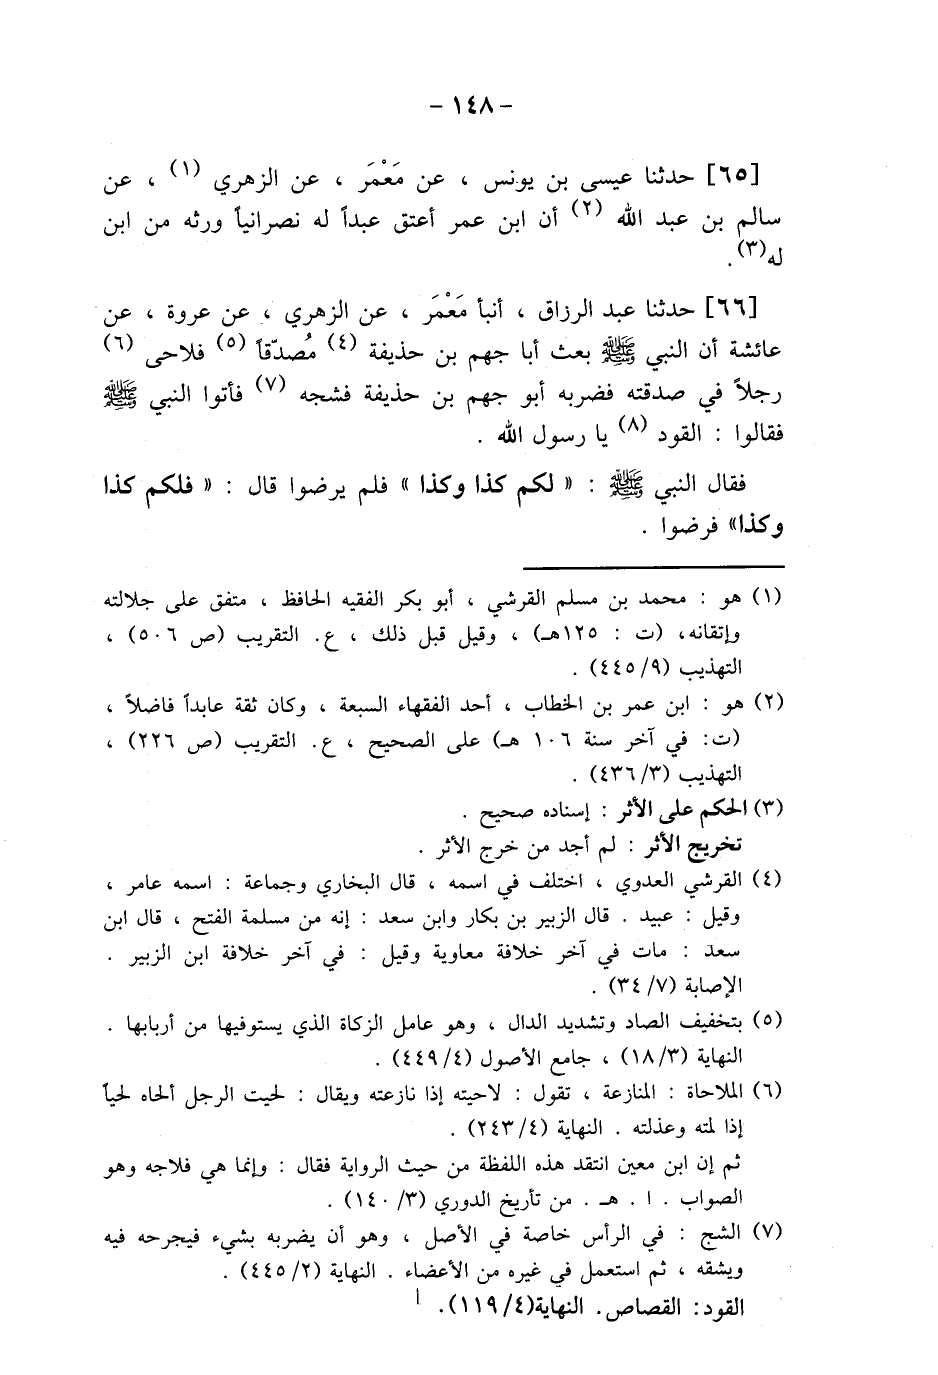 – ١٤٨ –
[٦٥] حدثنا عيسى بن يونس ، عن مَعْمَر ، عن الزهري (١) ، عن
سالم بن عبد الله (٢) أن ابن عمر أعتق عبداً له نصرانياً ورثه من ابن
له(٣).
[٦٦] حدثنا عبد الرزاق ، أنبأ مَعْمَر ، عن الزهري ، عن عروة ، عن
عائشة أن النبي ﷺ بعث أبا جهم بن حذيفة (٤) مُصدّقاً (٥) فلاحى (٦)
رجلاً في صدقته فضربه أبو جهم بن حذيفة فشجه (٧) فأتوا النبي ﷺ
فقالوا : القود (٨) يا رسول الله .
فقال النبي ﷺ : « لكم كذا وكذا » فلم يرضوا قال : « فلكم كذا
وكذا» فرضوا .
(١) هو : محمد بن مسلم القرشي ، أبو بكر الفقيه الحافظ ، متفق على جلالته
وإتقانه، (ت : ١٢٥هـ) ، وقيل قبل ذلك ، ع. التقريب (ص ٥٠٦) ،
التهذيب (٤٤٥/٩) .
(٢) هو : ابن عمر بن الخطاب ، أحد الفقهاء السبعة ، وكان ثقة عابداً فاضلاً ،
(ت: في آخر سنة ١٠٦ هـ) على الصحيح ، ع. التقريب (ص ٢٢٦) ،
التهذيب (٤٣٦/٣) .
(٣) الحكم على الأثر : إسناده صحيح .
تخريج الأثر : لم أجد من خرج الأثر .
(٤) القرشي العدوي ، اختلف في اسمه ، قال البخاري وجماعة : اسمه عامر ،
وقيل : عبيد . قال الزبير بن بكار وابن سعد : إنه من مسلمة الفتح ، قال ابن
سعد : مات في آخر خلافة معاوية وقيل : في آخر خلافة ابن الزبير .
الإصابة (٣٤/٧) .
(٥) بتخفيف الصاد وتشديد الدال ، وهو عامل الزكاة الذي يستوفيها من أربابها .
النهاية (١٨/٣) ، جامع الأصول (٤٤٩/٤) .
(٦) الملاحاة : المنازعة ، تقول : لاحيته إذا نازعته ويقال : لحيت الرجل ألحاه لحياً
إذا لمته وعذلته . النهاية (٢٤٣/٤) .
ثم إن ابن معين انتقد هذه اللفظة من حيث الرواية فقال : وإنما هي فلاجه وهو
الصواب . ا . هـ . من تأريخ الدوري (١٤٠/٣) .
(٧) الشج : في الرأس خاصة في الأصل ، وهو أن يضربه بشيء فيجرحه فيه
ويشقه ، ثم استعمل في غيره من الأعضاء . النهاية (٤٤٥/٢) .
القود: القصاص. النهاية(١١٩/٤).